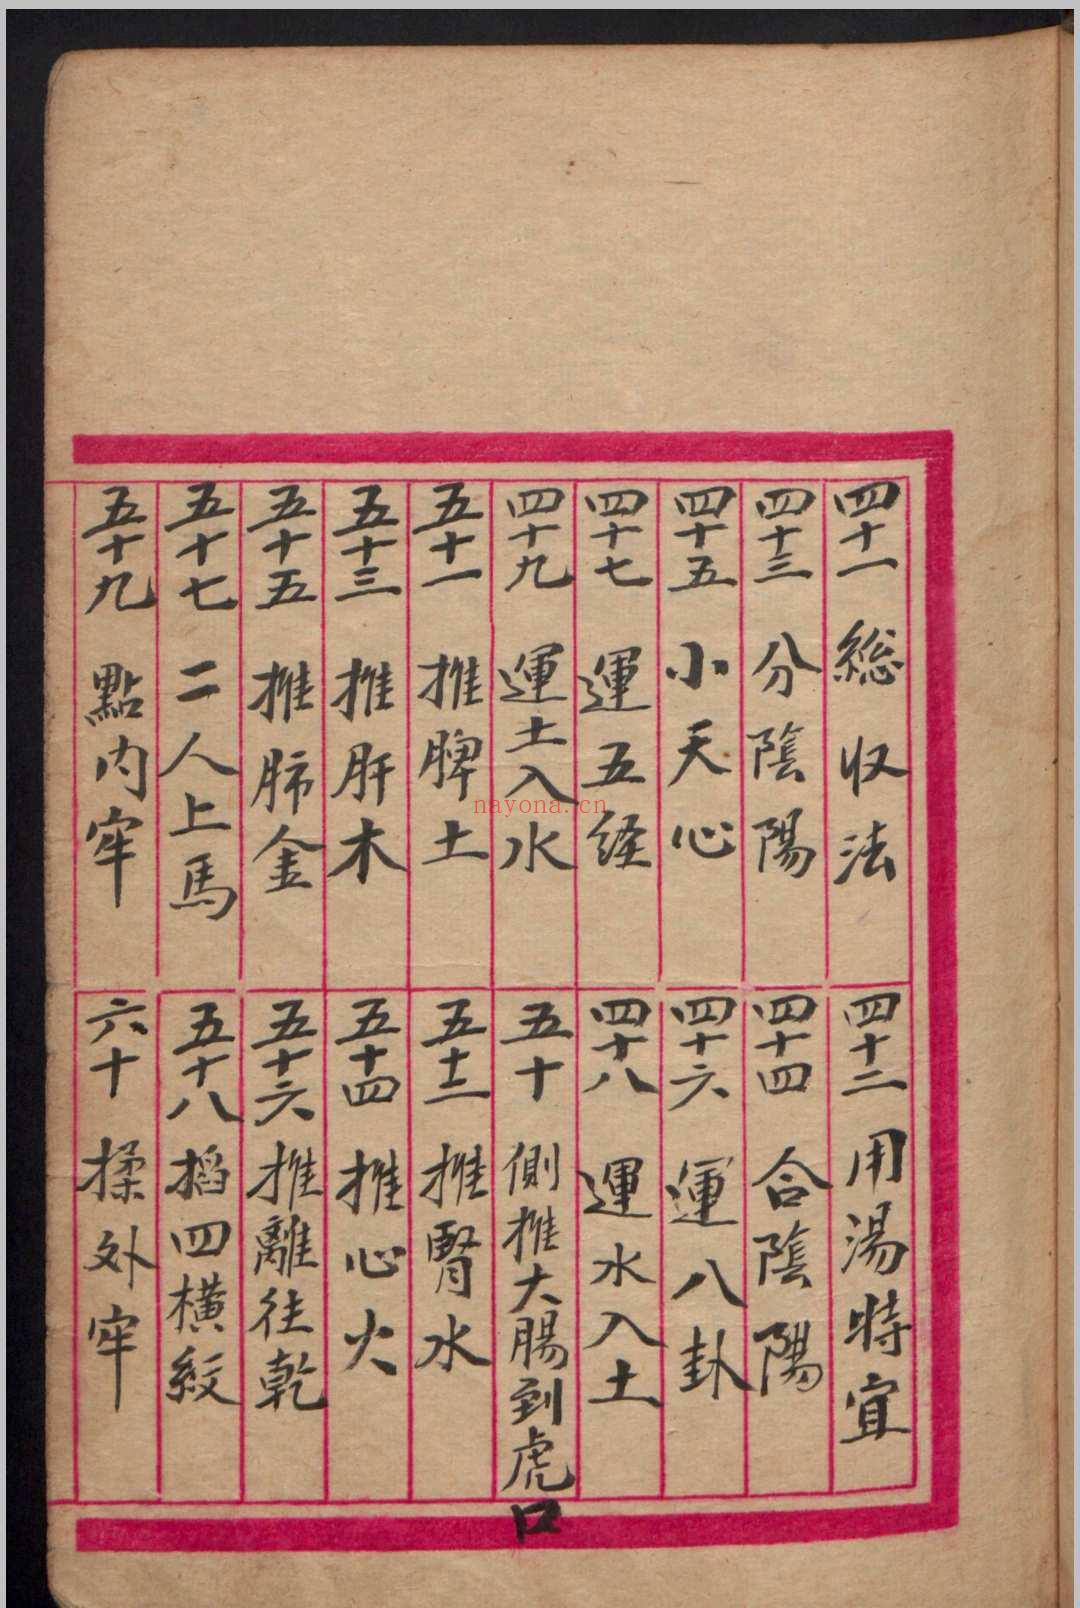 四十一 総収法
四十二 用湯時宜
四十三 分陰陽
四十四 合陰陽
四十五 小天心
四十六 運八卦
四十七 運五経
四十八 運水入土
四十九 運土入水
五十 側推大腸到虎口
五十一 推脾土
五十二 推腎水
五十三 推肝木
五十四 推心火
五十五 推肺金
五十六 推離往乾
五十七 二人上馬
五十八 掐四橫紋
五十九 點內牢
六十 揉外牢
nayona.cn